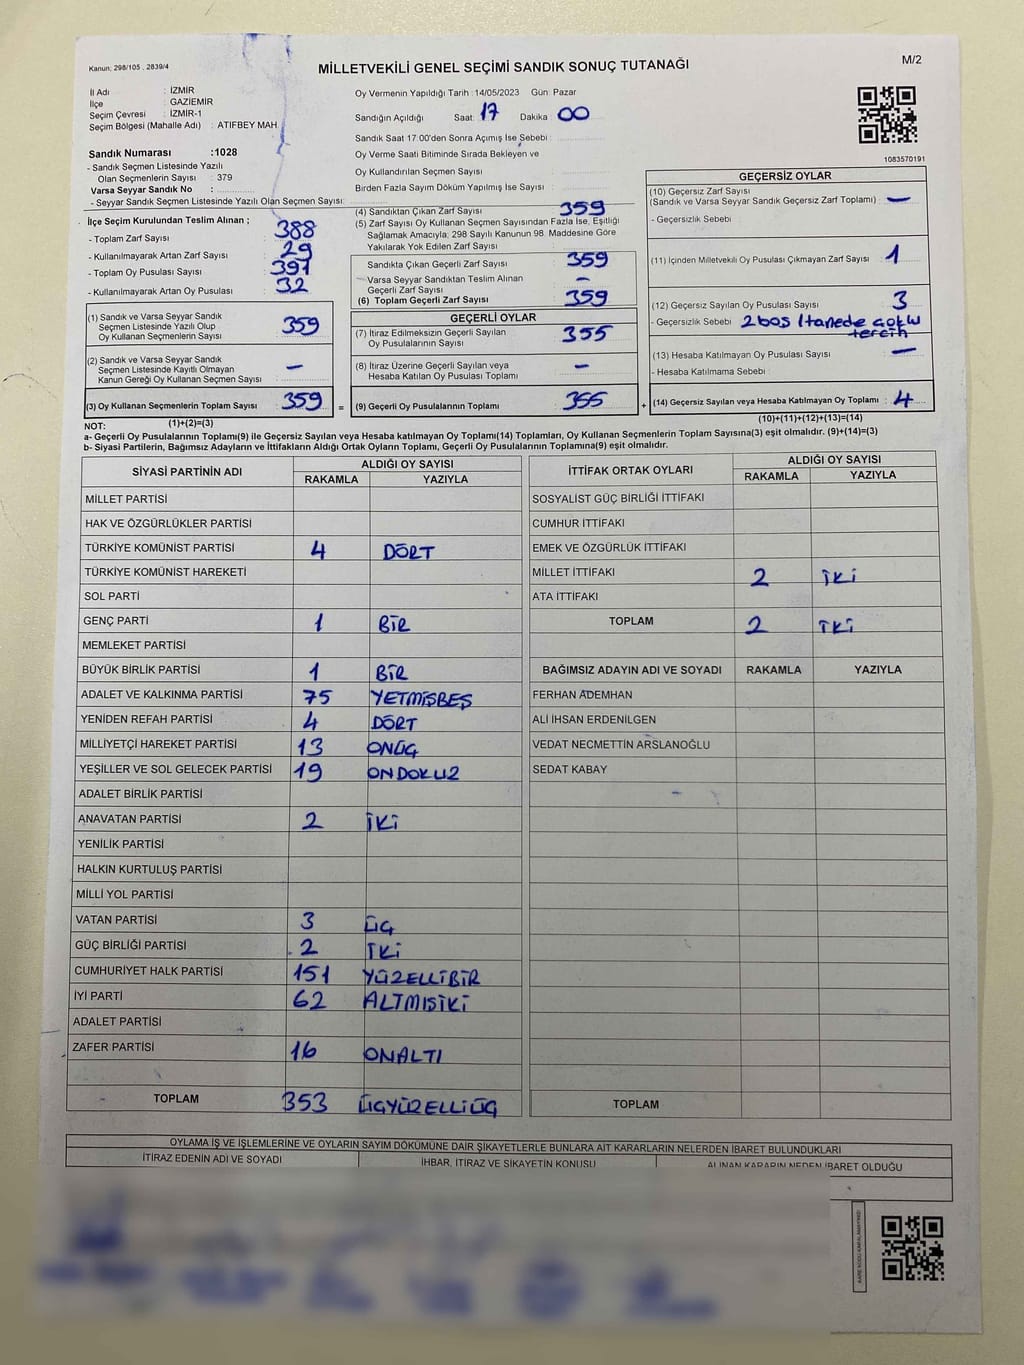 Kanun, 298/105 , 2839/4
MİLLETVEKİLİ GENEL SEÇİMİ SANDIK SONUÇ TUTANAĞI
M/2
İl Adı : İZMİR
İlçe : GAZİEMİR
Seçim Çevresi : İZMİR-1
Seçim Bölgesi (Mahalle Adı) : ATIFBEY MAH
Sandık Numarası :1028
- Sandık Seçmen Listesinde Yazılı
Olan Seçmenlerin Sayısı : 379
Varsa Seyyar Sandık No :
- Seyyar Sandık Seçmen Listesinde Yazılı Olan Seçmen Sayısı:
Oy Vermenin Yapıldığı Tarih :14/05/2023 Gün: Pazar
Sandığın Açıldığı Saat: 17 Dakika : 00
Sandık Saat 17.00'den Sonra Açımış İse Sebebi :
Oy Verme Saati Bitiminde Sırada Bekleyen ve
Oy Kullandırılan Seçmen Sayısı :
Birden Fazla Sayım Döküm Yapılmış İse Sayısı :
1083570191
İlçe Seçim Kurulundan Teslim Alınan ;
- Toplam Zarf Sayısı : 388
- Kullanılmayarak Artan Zarf Sayısı : 29
- Toplam Oy Pusulası Sayısı : 391
- Kullanılmayarak Artan Oy Pusulası : 32
(1) Sandık ve Varsa Seyyar Sandık
Seçmen Listesinde Yazılı Olup
Oy Kullanan Seçmenlerin Sayısı : 359
(2) Sandık ve Varsa Seyyar Sandık
Seçmen Listesinde Kayıtlı Olmayan
Kanun Gereği Oy Kullanan Seçmen Sayısı : —
(3) Oy Kullanan Seçmenlerin Toplam Sayısı : 359
(1)+(2)=(3)
(4) Sandıktan Çıkan Zarf Sayısı : 359
(5) Zarf Sayısı Oy Kullanan Seçmen Sayısından Fazla İse, Eşitliği
Sağlamak Amacıyla, 298 Sayılı Kanunun 98. Maddesine Göre
Yakılarak Yok Edilen Zarf Sayısı :
Sandıkta Çıkan Geçerli Zarf Sayısı : 359
Varsa Seyyar Sandıktan Teslim Alınan
Geçerli Zarf Sayısı : —
(6) Toplam Geçerli Zarf Sayısı : 359
GEÇERLİ OYLAR
(7) İtiraz Edilmeksizin Geçerli Sayılan
Oy Pusulalarının Sayısı : 355
(8) İtiraz Üzerine Geçerli Sayılan veya
Hesaba Katılan Oy Pusulası Toplamı : —
= (9) Geçerli Oy Pusulalarının Toplamı : 355
GEÇERSİZ OYLAR
(10) Geçersiz Zarf Sayısı
(Sandık ve Varsa Seyyar Sandık Geçersiz Zarf Toplamı) : —
- Geçersizlik Sebebi :
(11) İçinden Milletvekili Oy Pusulası Çıkmayan Zarf Sayısı : 1
(12) Geçersiz Sayılan Oy Pusulası Sayısı : 3
- Geçersizlik Sebebi : 2 boş 1 tanede çoklu
tercih
(13) Hesaba Katılmayan Oy Pusulası Sayısı : —
- Hesaba Katılmama Sebebi :
+ (14) Geçersiz Sayılan veya Hesaba Katılmayan Oy Toplamı : 4
(10)+(11)+(12)+(13)=(14)
NOT:
a- Geçerli Oy Pusulalarının Toplamı(9) ile Geçersiz Sayılan veya Hesaba katılmayan Oy Toplamı(14) Toplamları, Oy Kullanan Seçmenlerin Toplam Sayısına(3) eşit olmalıdır. (9)+(14)=(3)
b- Siyasi Partilerin, Bağımsız Adayların ve İttifakların Aldığı Ortak Oyların Toplamı, Geçerli Oy Pusulalarının Toplamına(9) eşit olmalıdır.
SİYASİ PARTİNİN ADI ALDIĞI OY SAYISI
RAKAMLA YAZIYLA
MİLLET PARTİSİ
HAK VE ÖZGÜRLÜKLER PARTİSİ
TÜRKİYE KOMÜNİST PARTİSİ 4 DÖRT
TÜRKİYE KOMÜNİST HAREKETİ
SOL PARTİ
GENÇ PARTİ 1 BİR
MEMLEKET PARTİSİ
BÜYÜK BİRLİK PARTİSİ 1 BİR
ADALET VE KALKINMA PARTİSİ 75 YETMİŞBEŞ
YENİDEN REFAH PARTİSİ 4 DÖRT
MİLLİYETÇİ HAREKET PARTİSİ 13 ONÜÇ
YEŞİLLER VE SOL GELECEK PARTİSİ 19 ONDOKUZ
ADALET BİRLİK PARTİSİ
ANAVATAN PARTİSİ 2 İKİ
YENİLİK PARTİSİ
HALKIN KURTULUŞ PARTİSİ
MİLLİ YOL PARTİSİ
VATAN PARTİSİ 3 ÜÇ
GÜÇ BİRLİĞİ PARTİSİ 2 İKİ
CUMHURİYET HALK PARTİSİ 151 YÜZELLİBİR
İYİ PARTİ 62 ALTMIŞİKİ
ADALET PARTİSİ
ZAFER PARTİSİ 16 ONALTI
TOPLAM 353 ÜÇYÜZELLİÜÇ
İTTİFAK ORTAK OYLARI ALDIĞI OY SAYISI
RAKAMLA YAZIYLA
SOSYALİST GÜÇ BİRLİĞİ İTTİFAKI
CUMHUR İTTİFAKI
EMEK VE ÖZGÜRLÜK İTTİFAKI
MİLLET İTTİFAKI 2 İKİ
ATA İTTİFAKI
TOPLAM 2 İKİ
BAĞIMSIZ ADAYIN ADI VE SOYADI RAKAMLA YAZIYLA
FERHAN ADEMHAN
ALİ İHSAN ERDENİLGEN
VEDAT NECMETTİN ARSLANOĞLU
SEDAT KABAY
TOPLAM
OYLAMA İŞ VE İŞLEMLERİNE VE OYLARIN SAYIM DÖKÜMÜNE DAİR ŞİKAYETLERLE BUNLARA AİT KARARLARIN NELERDEN İBARET BULUNDUKLARI
İTİRAZ EDENİN ADI VE SOYADI İHBAR, İTİRAZ VE ŞİKAYETİN KONUSU ALINAN KARARIN NEDEN İBARET OLDUĞU
KARE KODU KARALAMAYINIZ!